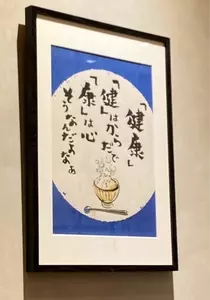 「健康」
「健」はからだで
「康」は心
そうなんだごのなぁ